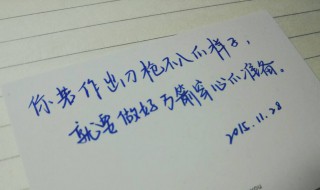 你若作出刀枪不入爪样子，
就要做好万箭穿心爪准备。
2015.11.28